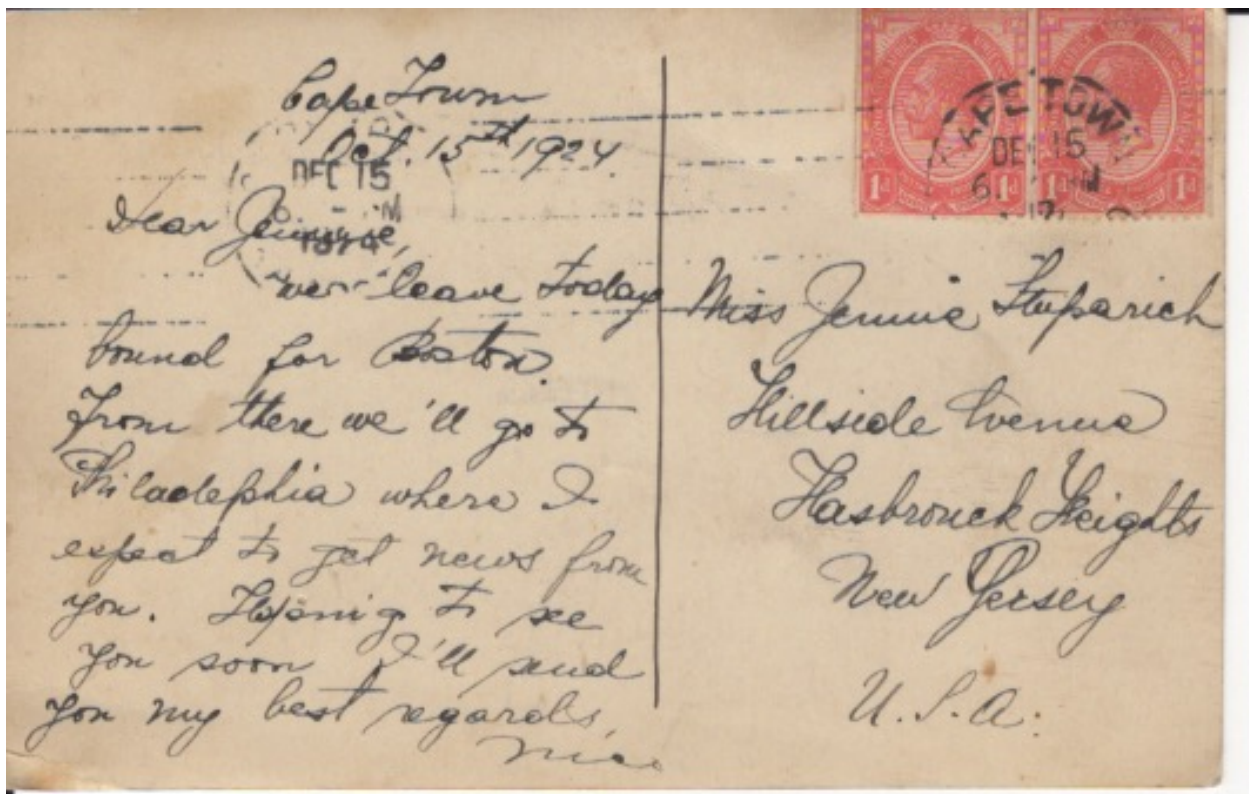 Cape Town
Oct. 15th 1924.
DEC 15
M
1924
Dear Jennie,
we leave today
bound for Boston.
From there we'll go to
Philadephia where I
expect to get news from
you. Hoping to see
you soon I'll send
you my best regards,
CAPE TOWN
DEC 15
6
1d 1d 1d 1d
Miss Jennie Stuparich
Hillside Avenue
Hasbrouck Heights
New Jersey
U.S.A.